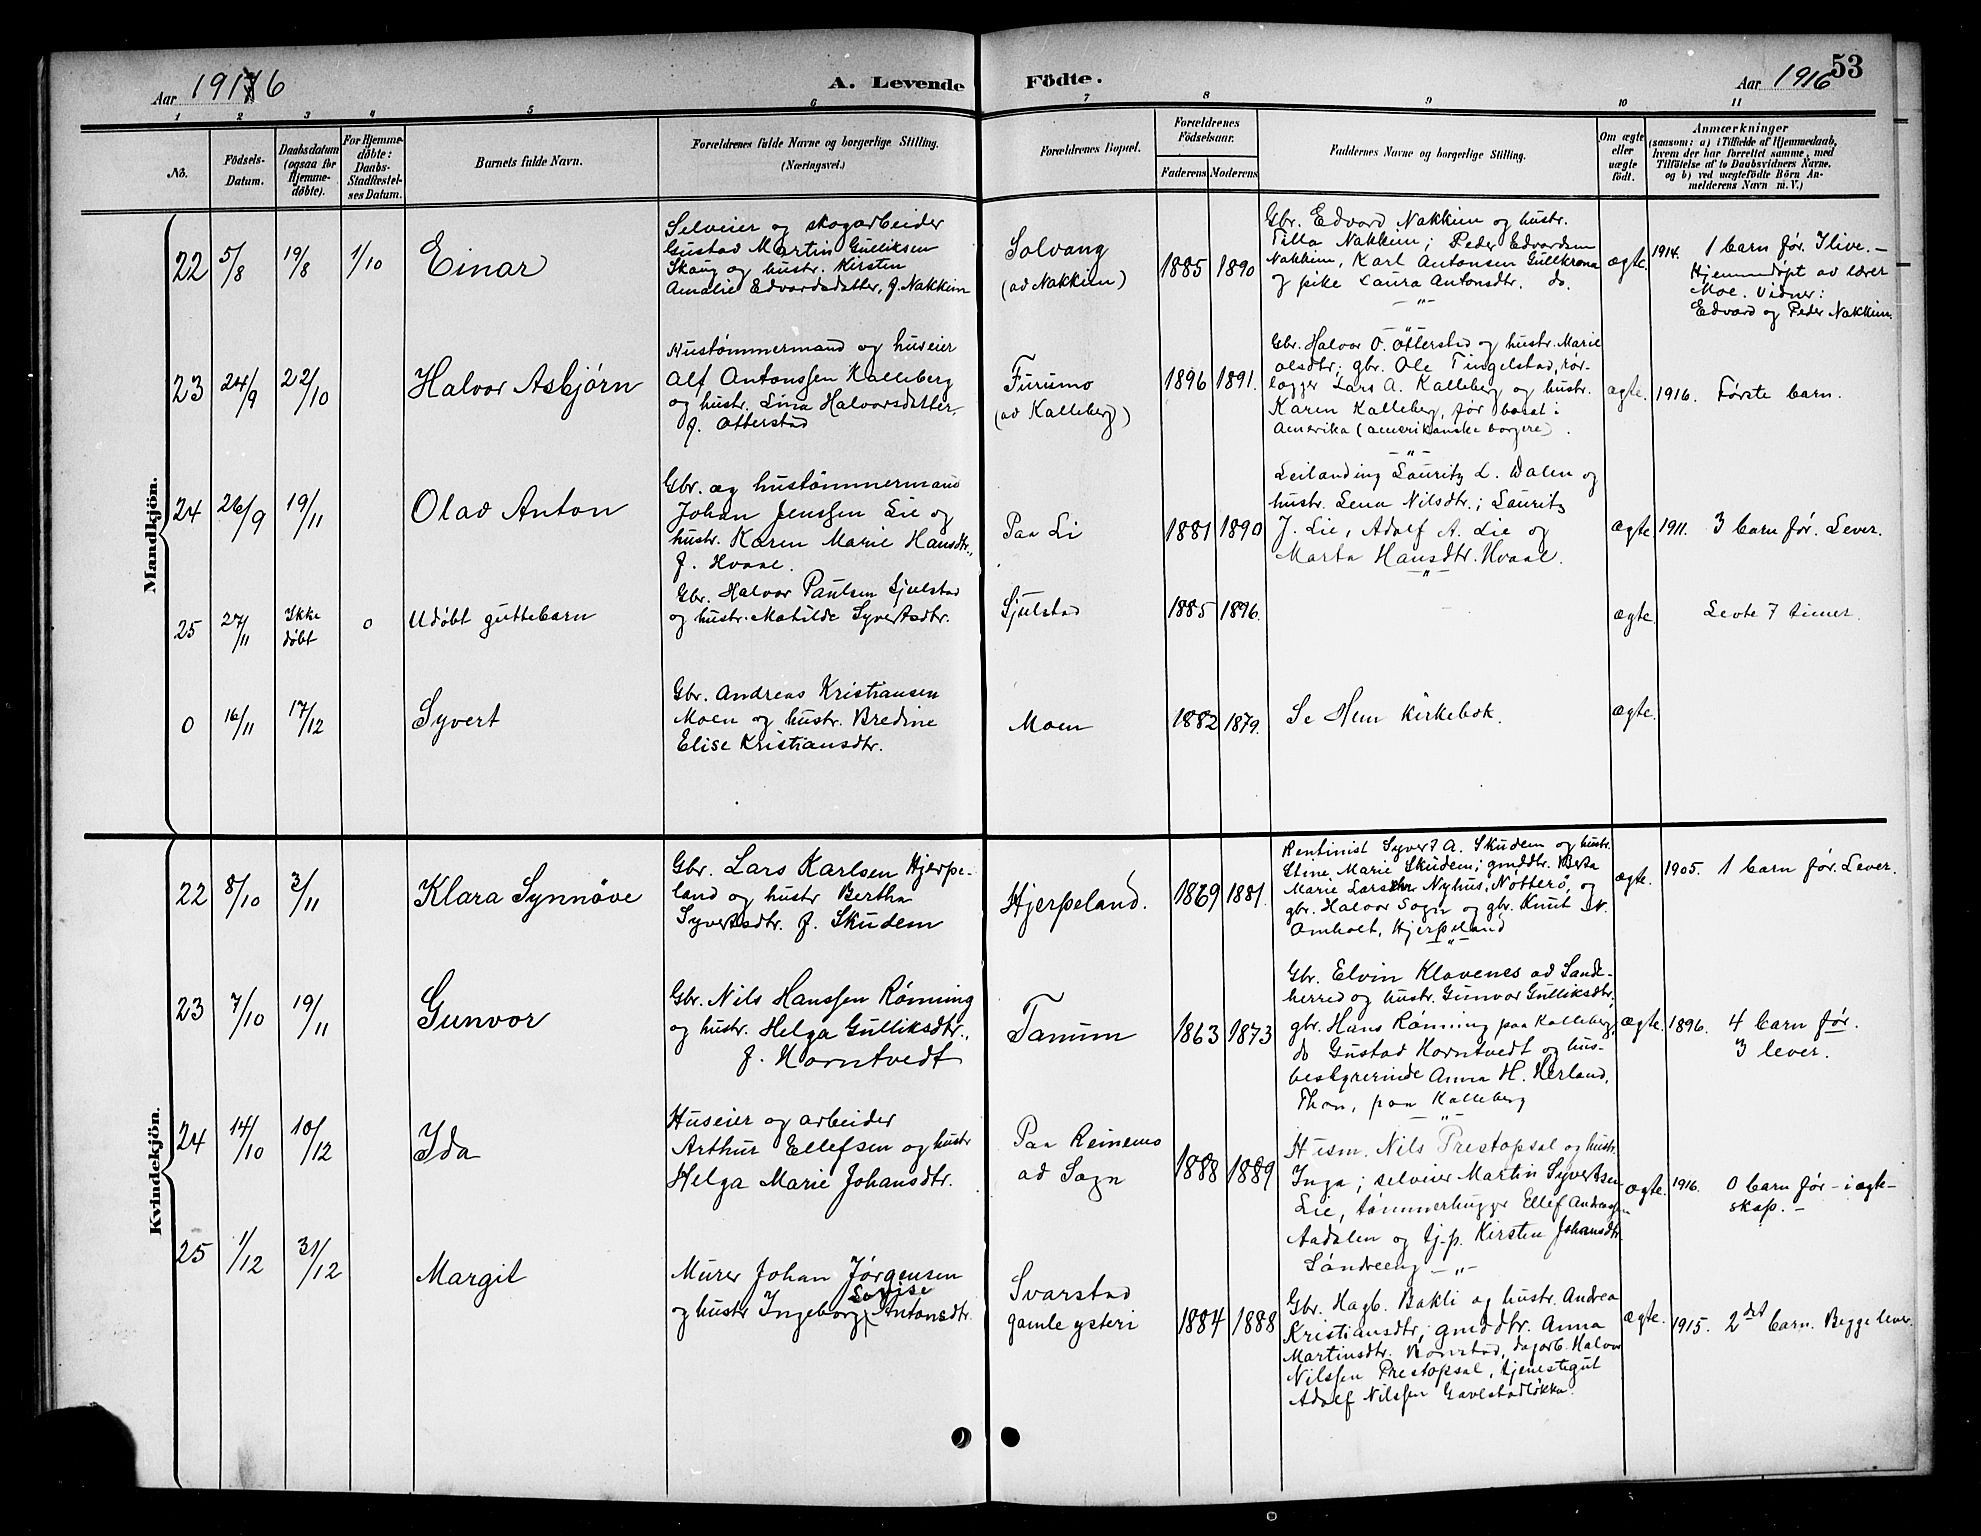 53
Aar 1916
A. Levende Födte.
Aar 1916
1 2 3 4 5 6 7 8 9 10 11
No.
Födsels-
Datum.
Daabsdatum
(ogsaa for
Hjemme-
døbte).
For Hjemme-
døbte:
Daabs-
Stadfæstel-
ses Datum.
Barnets fulde Navn.
Forældrenes fulde Navne og borgerlige Stilling.
(Næringsvei.)
Forældrenes Bopæl.
Forældrenes
Födselsaar.
Faderens Moderens
Faddernes Navne og borgerlige Stilling.
Om ægte
eller
uægte
født.
Anmærkninger
(saasom: a) i Tilfælde af Hjemmedaab,
hvem der har forrettet samme, med
Tilföielse af to Daabsvidners Navne.
og b) ved uægtefödte Börn An-
melderens Navn m. V.)
Mandkjön.
22
5/8
19/8
1/10
Einar
Selveier og skogarbeider
Gustav Martin Gulliksen
Skaug og hustr. Kirsten
Amalie Edvardsdatter, f. Nakkim
Solvang
(av Nakkim)
1885 1890
Gbr. Edvard Nakkim og hustr.
Tilla Nakkim; Peder Edvardsen
Nakkim, Karl Antonsen Gullkrona
og pike Laura Antonsdtr. do.
ægte.
1914. 1 barn før. I live. -
Hjemmedøpt av lærer
Moe. Vidner:
Edvard og Peder Nakkim.
23
24/9
22/10
Halvor Asbjørn
Hustømmermand og huseier
Alf Antonssen Kalleberg
og hustr. Lina Halvorsdatter,
f. Otterstad
Furumo
(av Kalleberg)
1896 1891.
Gbr. Halvor O. Otterstad og hustr. Marie
Olsdtr; gbr. Ole Tingelstad, rør-
lægger Lars A. Kalleberg og hustr.
Karen Kalleberg, før bosat i
Amerika (amerikanske borgere).
ægte.
1916. Første barn.
24
26/9
19/11
Olav Anton
Gbr. og hustømmermand
Johan Jenssen Lie og
hustr. Karen Marie Hansdtr.,
f. Hvaal.
Paa Li
1881 1890
Leilænding Lauritz L. Dalen og
hustr. Lena Nilsdtr.; Lauritz
J. Lie, Adolf A. Lie og
Marta Hansdtr. Hvaal.
ægte
1911. 3 barn før. Lever.
25
27/11
Ikke
døbt
0
Udøbt guttebarn
Gbr. Halvor Paulsen Sjulstad
og hustr. Matilde Syvertsdtr.
Sjulstad
1885 1896.
ægte.
Levte 7 timer.
0
16/11
17/12
Syvert
Gbr. Andreas Kristiansen
Moen og hustr. Bredine
Elise Kristiansdtr.
Moen
1882 1879.
Se Hem Kirkebok.
ægte.
Kvindekjön.
22
8/10
3/11
Klara Synnøve
Gbr. Lars Karlsen Hjerpe-
land og hustr Bertha
Syvertsdtr. f. Skudem
Hjerpeland.
1869 1881.
Rentinist Syvert A. Skudem og hustr.
Stine Marie Skudem; gmddtr. Berta
Marie Larsdtr Nyhus, Nøtterö, og
gbr. Halvor Sogn og gbr. Knut
Amholt, Hjerpeland
ægte.
1905. 1 barn før. Lever.
23
7/10
19/11
Gunvor
Gbr. Nils Hanssen Rønning
og hustr. Helga Gulliksdtr.,
f. Horntvedt
Tanum
1863 1873
Gbr. Elvin Klavenes av Sande-
herred og hustr. Gunvor Gulliksdtr,
gbr. Hans Rønning paa Kalleberg,
do Gustav Horntvedt og hus-
bestyrerinde Anna H. Herland,
Thon, paa Kalleberg
ægte.
1896. 4 barn før.
3 lever.
24
14/10
10/12
Ida
Huseier og arbeider
Arthur Ellefsen og hustr
Helga Marie Johansdtr.
Paa Reinemo
av Sogn
1888 1889
Husm. Nils Prestopsal og hustr.
Inga; selveier Martin Syvertsen
Lie, tømmerhugger Ellef Andreassen
Aadalen og tj.p. Kirsten Johansdtr.
Søndreeng
ægte.
1916. 0 barn før - i egte-
skap. -
25
1/12
31/12
Margit
Murer Johan Jørgensen
og hustr Ingeborg Lovise Antonsdtr.
Svarstad
gamle ysteri
1884 1888
Gbr. Hagb. Bakli og hustr. Andrea
Kristiansdtr; gmddtr. Anna
Martinsdtr. Rønstad, dagarb. Halvor
Nilssen Prestopsal, tjenestegut
Adolf Nilssen Gavelstadløkka.
ægte.
1915. 2det barn. Begge lever.